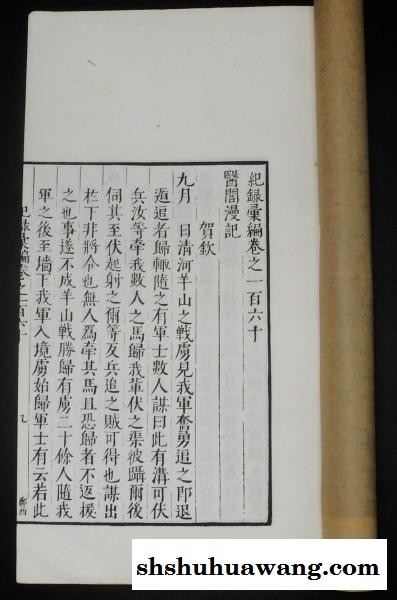 紀録彙編卷之一百六十
醫閭漫記
賀欽
九月　日清河羊山之戰虜見我軍奮勇追之即退
遁追者歸輙隨之有軍士數人謀曰此有溝可伏
兵汝等牽我數人之馬歸我輩伏之渠彼躡爾後
伺其至伏起射之爾等反兵追之賊可得也謀出
於下非將令也無人爲牽其馬且恐歸者不返援
之也事遂不成羊山戰勝歸有虜二十餘人隨我
軍之後至墻下我軍入境虜始歸軍士有云若此
shshuhuawang.com